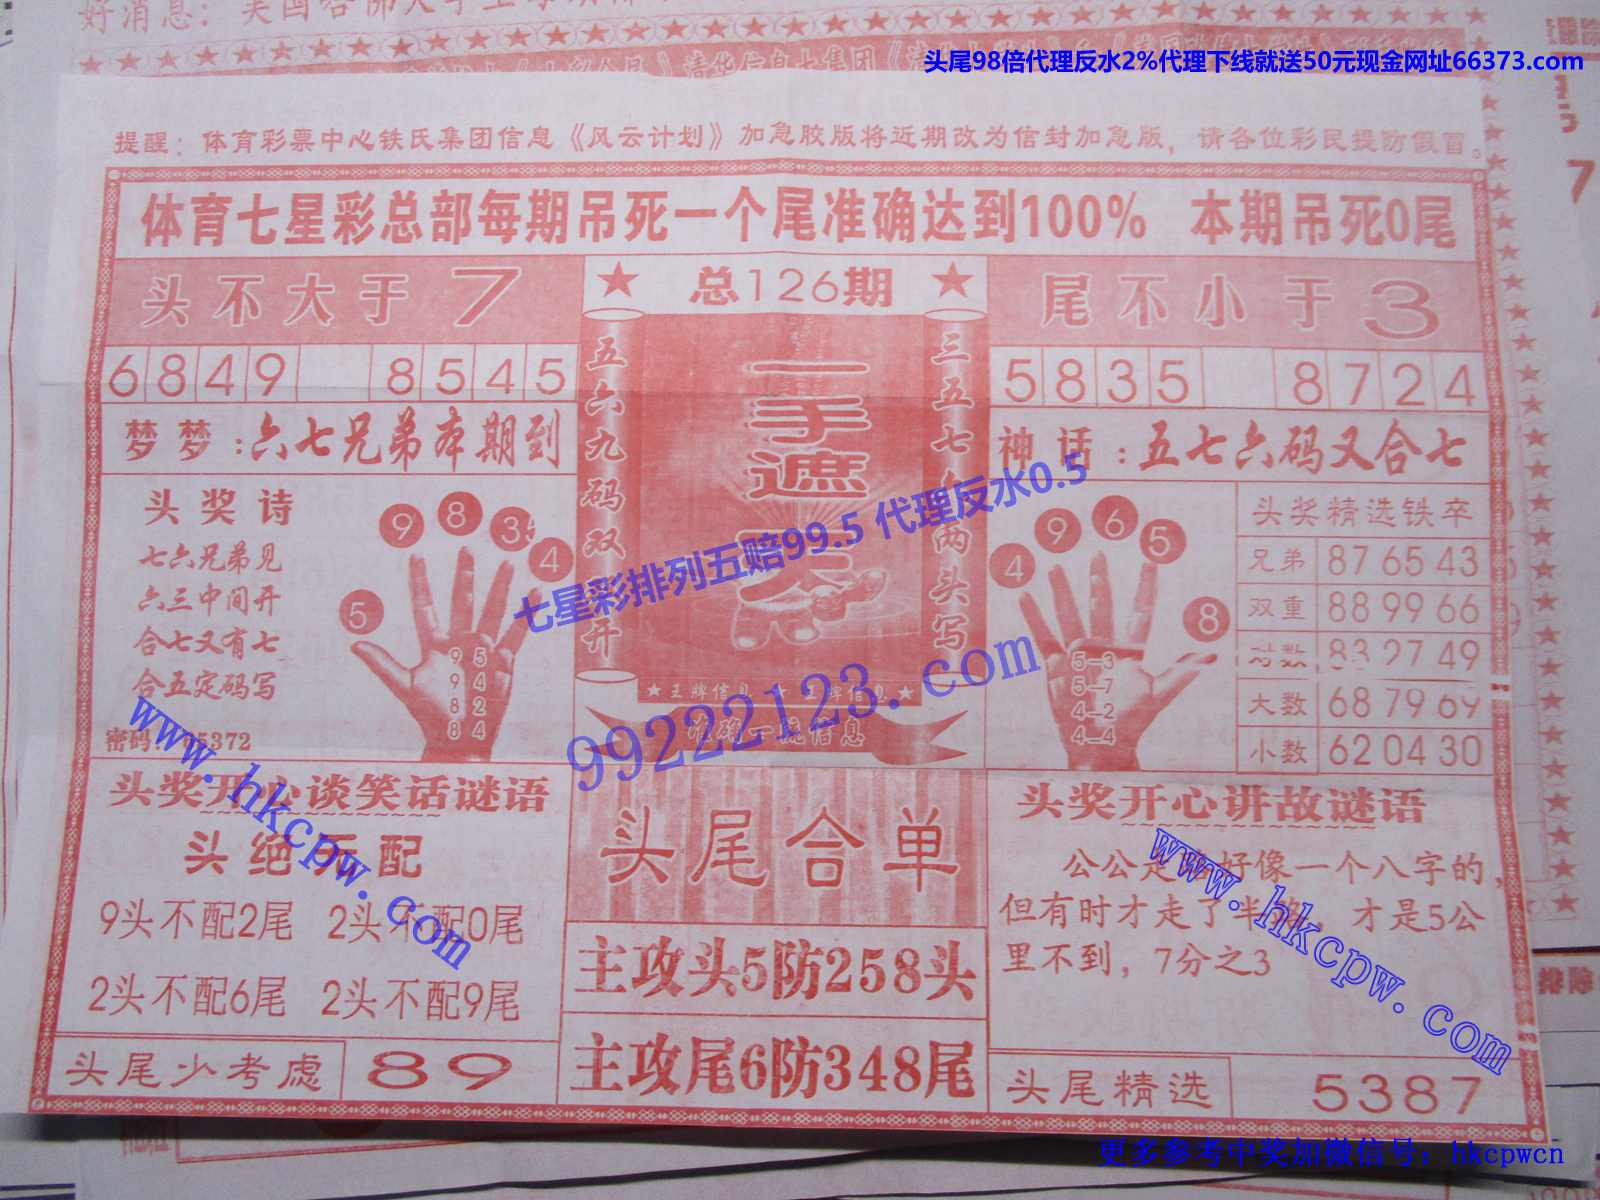 好消息：
头尾98倍代理反水2%代理下线就送50元现金网址66373.com
提醒：体育彩票中心铁氏集团信息《风云计划》加急胶版将近期改为信封加急版，请各位彩民提防假冒。
体育七星彩总部每期吊死一个尾准确达到100% 本期吊死0尾
头不大于7
6849 8545
梦梦：六七兄弟本期到
头奖诗
七六兄弟见
六三中间开
合七又有七
合五定码写
密码
5372
5 9 8 3 4
9 5
9 4
8 2
8 4
★ 总126期 ★
五六九码双
开
一手遮
三五七
两头写
★王牌信息★
信息★
准确一流信息
七星彩排列五赔99.5 代理反水0.5
99222123.com
尾不小于3
5835 8724
神话：五七六码又合七
4 9 6 5 8
5—3
5—7
4—2
4—4
头奖精选铁卒
兄弟 87 65 43
双重 88 99 66
对数 83 27 49
大数 68 79 69
小数 62 04 30
www.hkcpw.com
头奖开心谈笑话谜语
头绝不配
9头不配2尾 2头不配0尾
2头不配6尾 2头不配9尾
头尾少考虑 89
头尾合单
主攻头5防258头
主攻尾6防348尾
头奖开心讲故谜语
公公走路好像一个八字的，
但有时才走了半路，才是5公
里不到，7分之3
www.hkcpw.com
头尾精选 5387
更多参考中奖加微信号：hkcpwcn
排除